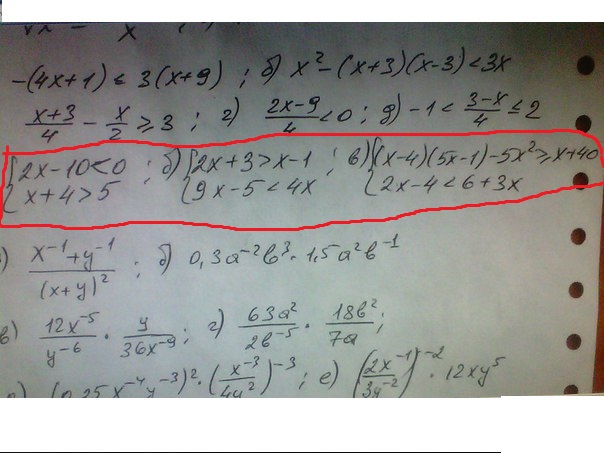 x
-(4x+1) < 3(x+9) ; б) x²-(x+3)(x-3)<3x
(x+3)/4 - x/2 ≥ 3 ; г) (2x-9)/4 < 0 ; д) -1 < (3-x)/4 ≤ 2
{2x-10<0 ; б) {2x+3>x-1 ; в) {(x-4)(5x-1)-5x²≥x+40
{x+4>5 {9x-5<4x {2x-4<6+3x
) (x⁻¹+y⁻¹)/(x+y)² ; б) 0,3a⁻²b³·1,5a²b⁻¹
в) 12x⁻⁵/y⁻⁶ · y/36x⁻⁹ ; г) 63a²/2b⁻⁵ · 18b²/7a ;
) (0,25x⁻⁴y⁻³)²·(x⁻³/4y²)⁻³ ; е) (2x⁻¹/3y⁻²)⁻²·12xy⁵